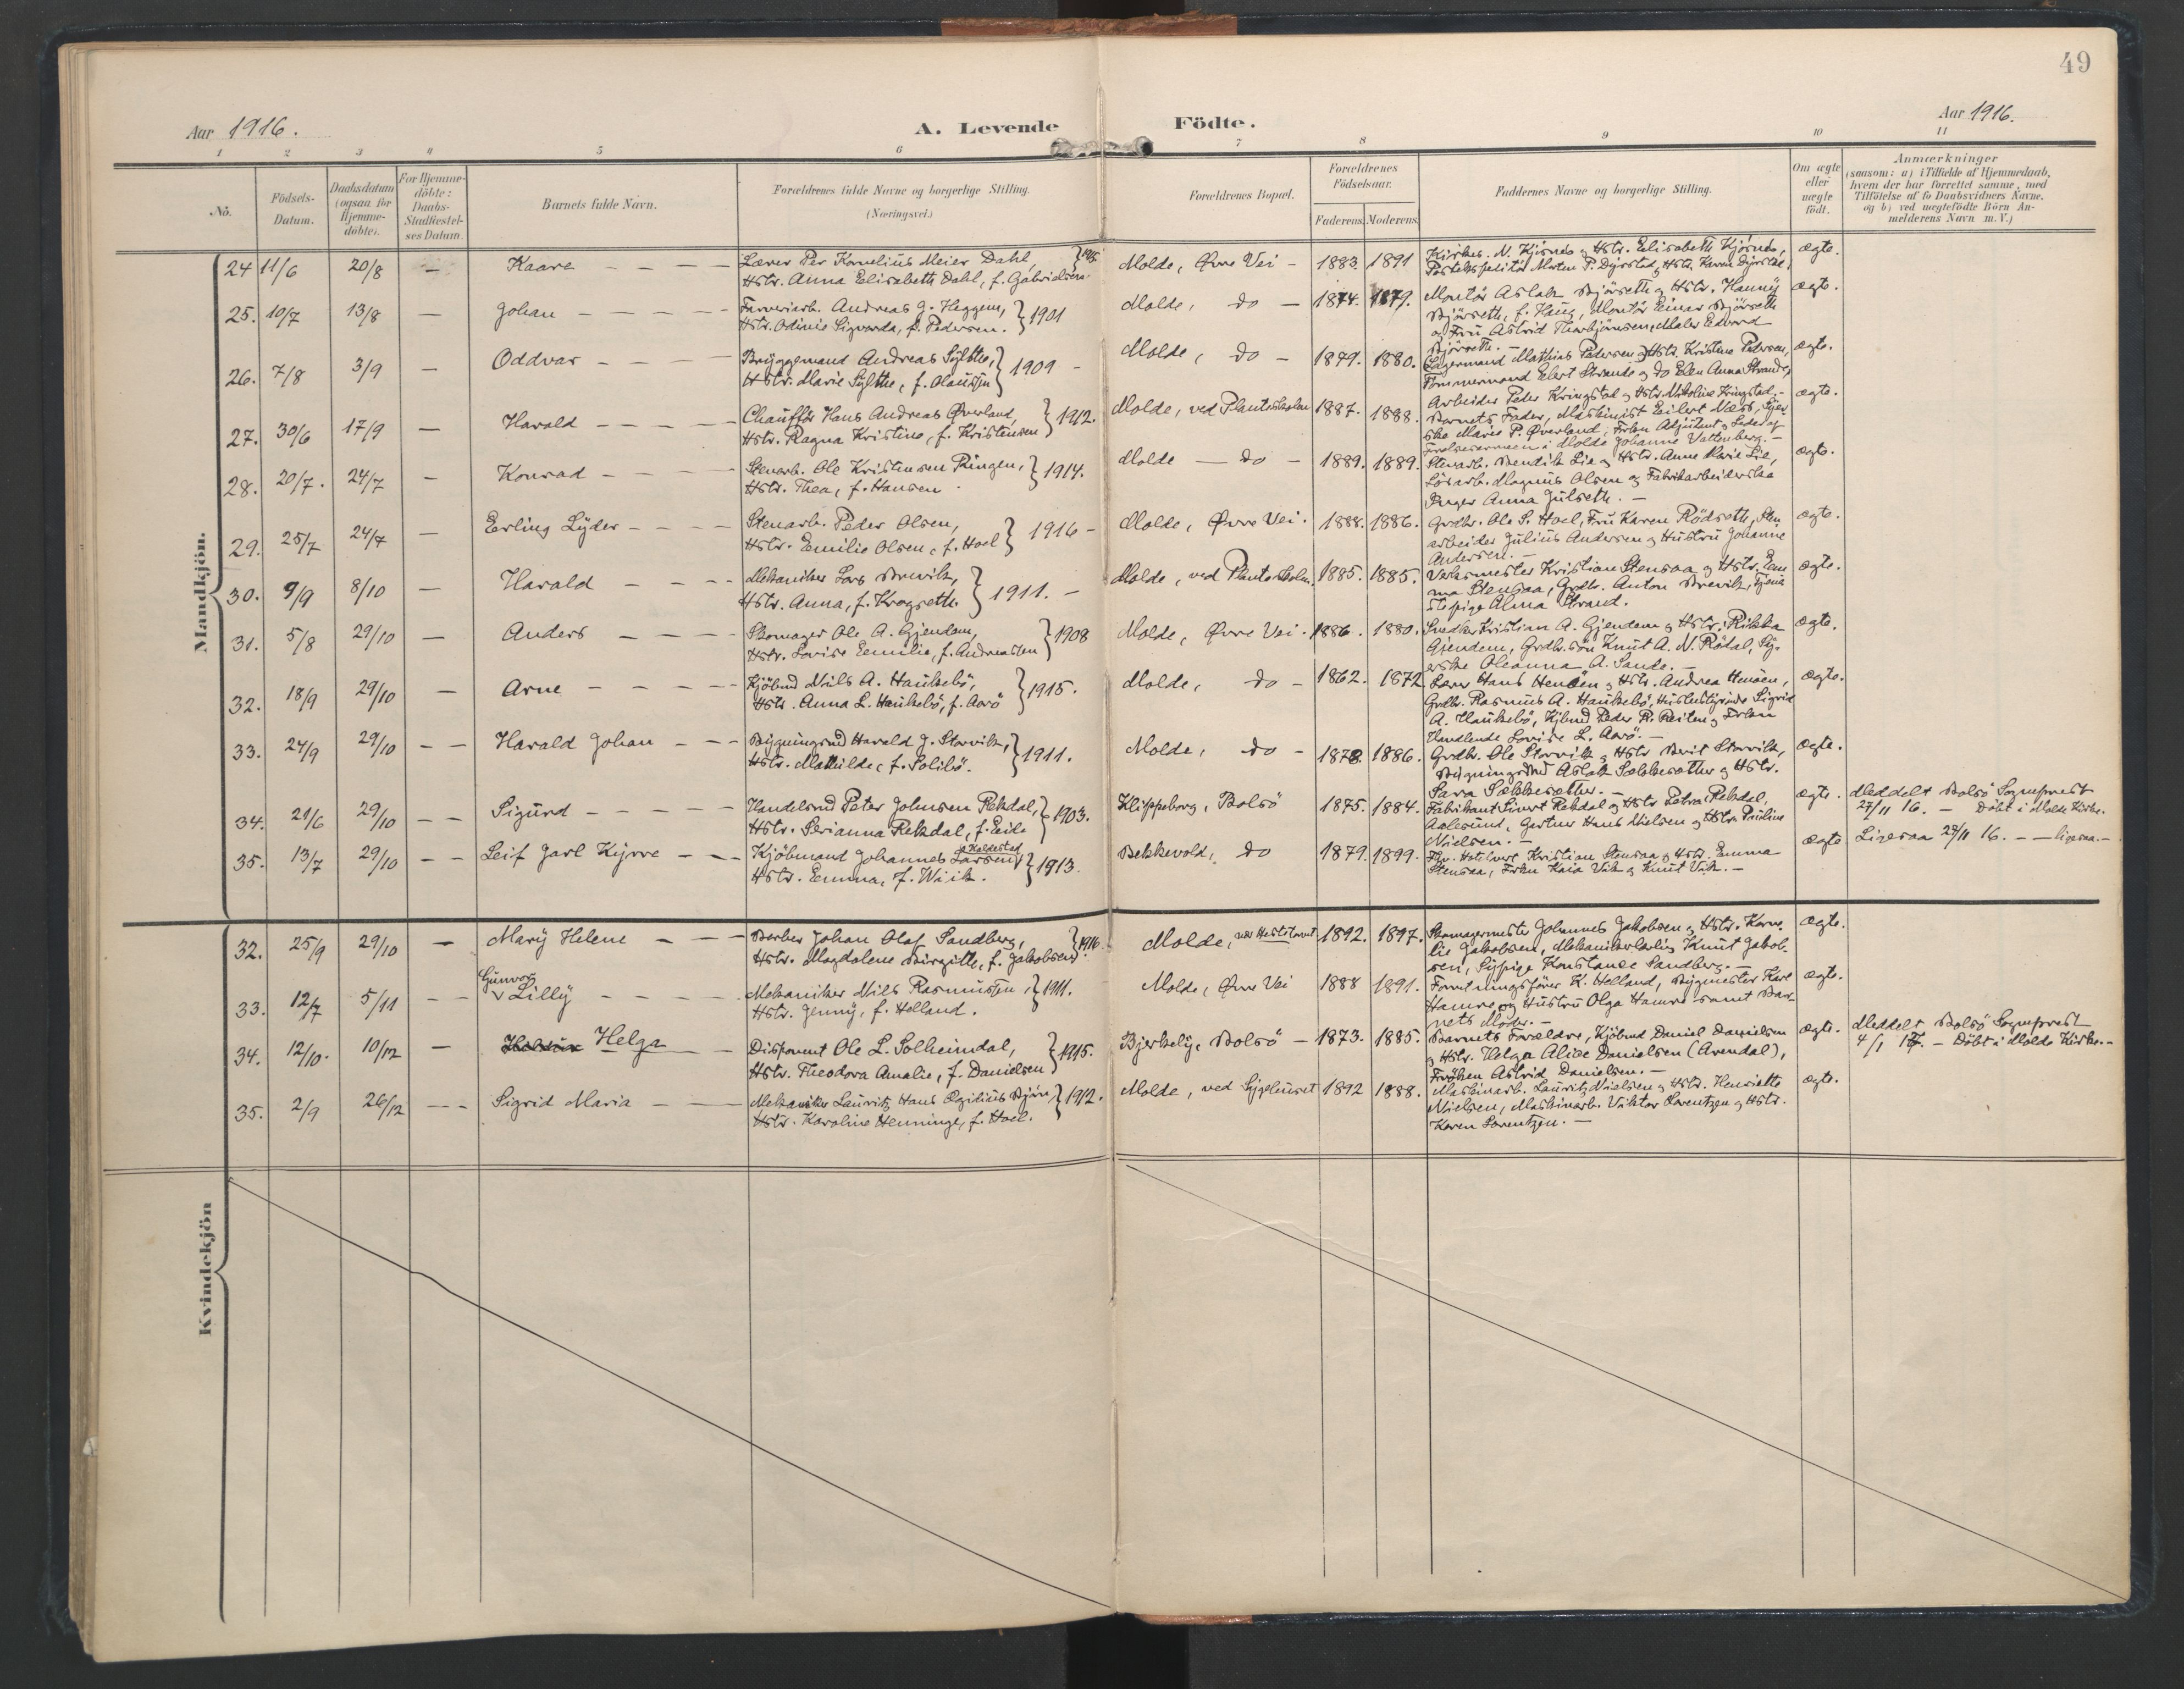 49
Aar 1916.
A. Levende Födte.
Aar 1916.
1 2 3 4 5 6 7 8 9 10 11
No.
Födsels-Datum.
Daabsdatum (ogsaa for Hjemme-döbte).
For Hjemme-döbte: Daabs-Stadfæstel-ses Datum.
Barnets fulde Navn.
Forældrenes fulde Navne og borgerlige Stilling.
(Næringsvei.)
Forældrenes Bopæl.
Forældrenes Födselsaar.
Faderens. Moderens.
Faddernes Navne og borgerlige Stilling.
Om ægte eller uægte födt.
Anmærkninger
(saasom: a) i Tilfælde af Hjemmedaab,
hvem der har forrettet samme, med
Tilföielse af to Daabsvidners Navne,
og b) ved uægtefödte Börn An-
melderens Navn m. V.)
Mandkjön.
24 11/6 20/8 — Kaare — Lærer Per Kornelius Meier Dahl,
Hstr. Anna Elisabeth Dahl, f. Gabrielsen
Molde, Øvre Vei — 1883. 1891
Kirkes. N. Kjörnes & Hstr. Elisabeth Kjörnes,
Postekspeditör Morten P. Dyrstad & Hstr. Karen Dyrstad.
ægte.
25. 10/7 13/8 — Johan — Farveriarb. Andreas J. Heggem,
Hstr. Odinie Sigvarda, f. Pedersen. } 1901
Molde, do — 1874. 1879.
Montör Aslak Björseth & Hstr. Hanny
Björseth, f. Haug, Montör Einar Björseth
og Fru Astrid Thorbjörnsen, Maler Edvard
Björseth. —
ægte.
26. 7/8 3/9 — Oddvar — Bryggemand Andreas Sylthe,
Hstr. Marie Sylthe, f. Olaussen } 1909 —
Molde, do — 1879. 1880.
Lagermand Mathias Pedersen & Hstr. Kristine Pedersen,
Tömmermand Elert Strande & do Elen Anna Strande,
Arbeider Peder Kringstad & Hstr. Nikoline Kringstad. —
ægte.
27. 30/6 17/9 — Harald — Chaufför Hans Andreas Øverland,
Hstr. Ragna Kristine, f. Kristensen } 1912.
Molde, ved Planteskolen 1887. 1888.
Barnets Fader, Maskinist Eilert Næss, Syer-
ske Marie P. Øverland, Frkn Adjutant & Leder af
Frelsesarmeen i Molde Johanne Vattenberg. —
ægte.
28. 20/7. 24/7 — Konrad — Stenarb. Ole Kristensen Ringen,
Hstr. Thea, f. Hansen } 1914.
Molde — do — 1889. 1889.
Stenarb. Bendik Lie & Hstr. Anne Marie Lie,
Lösarb. Magnus Olsen & Fabrikarbeiderske
Inger Anna Julseth. —
ægte.
29. 25/7 24/7 — Erling Lyder — Stenarb. Peder Olsen,
Hstr. Emilie Olsen, f. Hoel } 1916 —
Molde, Øvre Vei. 1888. 1886.
Grdbr. Ole S. Hoel, Fru Karen Rödseth, Sten-
arbeider Julius Andersen & Hustru Johanne
Andersen. —
ægte.
30. 9/9 8/10 — Harald — Mekaniker Lars Brevik,
Hstr. Anna, f. Krogseth. } 1911. —
Molde, ved Planteskolen. 1885. 1885.
Verksmester Kristian Stensaa & Hstr. Em-
ma Stensaa, Grdbr. Anton Brevik, Tjene-
stepige Alma Strand.
ægte.
31. 5/8 29/10 — Anders — Skomager Ole A. Gjendem,
Hstr. Lovise Emilie, f. Andreassen } 1908
Molde, Øvre Vei. 1886. 1880.
Snedker Kristian A. Gjendem & Hstr. Rikka
Gjendem, Grdbr.sön Knut A. N. Rödal, Sy-
erske Oleanna A. Sande. —
ægte.
32. 18/9 29/10 — Arne — Kjöbmd Nils A. Haukebö,
Hstr. Anna L. Haukebö, f. Aarö } 1915.
Molde, do — 1862. 1872
Lærer Hans Henöen & Hstr. Andrea Henöen,
Grdbr. Rasmus A. Haukebö, Sigrid
A. Haukebö, Kjbmd Peder R. Reiten & Frkn
Handlende Lovise L. Aarö. —
ægte.
33. 24/9 29/10 — — Harald Johan — Bygningssnd Harald J. Storvik,
Hstr. Mathilde, f. Solibö. } 1911.
Molde, do — 1878. 1886.
Grdbr. Ole Storvik & Hstr Berit Storvik,
Bygningssnd Aslak Sækkesæther & Hstr.
Sara Sækkesæther. —
ægte.
34. 21/6 29/10 — — Sigurd — Handelsmd Peter Johnsen Rekdal,
Hstr. Serianna Rekdal, f. Eide } 1903.
Klippeborg, Bolsö 1875. 1884.
Fabrikant Sivert Rekdal & Hstr Petra Rekdal,
Aalesund, Gartner Hans Nielsen & Hstr. Pauline
Nielsen. —
ægte.
Meddelt Bolsö Sogneprest
27/11 16. — Döbt i Molde Kirke.
35. 13/7 29/10 — — Leif Jarl Kyrre — Kjöbmand Johannes Larsen Kaldestad
Hstr. Emma, f. Wiik. } 1913.
Bekkevold, do 1879. 1899.
Fhv. Hotelvert Kristian Stensaa & Hstr. Emma
Stensaa, Frkn Kaia Vik & Knut Vik. —
ægte
Ligesaa 27/11 16. — — ligesaa. —
Kvindekjön
32. 25/9 29/10 — Mary Helene — Barber Johan Olaf Sandberg,
Hstr. Magdalene Birgitte, f. Jakobsen } 1916.
Molde, 1892. 1897.
Skomagermester Johannes Jakobsen & Hstr. Korne-
lie Jakobsen, Mekanikerlærling Knut Jakob-
sen, Sypige Konstanse Sandberg. —
ægte.
33. 12/7 5/11 — — Gunvor Lilly — Mekaniker Nils Rasmussen,
Hstr. Jenny, f. Helland. } 1911.
Molde, Øvre Vei 1888 1891.
Forretningsförer K. Helland, Bygmester Karl
Hamre og Hustru Olga Hamre samt Bar-
nets Moder. —
ægte.
34. 12/10. 10/12 — Helga — Disponent Ole L. Solheimdal,
Hstr. Theodora Amalie, f. Danielsen } 1915.
Bjerkely, Bolsö — 1873. 1885.
Barnets Forældre, Kjöbmd Daniel Danielsen
& Hstr. Helga Alice Danielsen (Arendal),
Fröken Astrid Danielsen. —
ægte.
Meddelt Bolsö Sogneprest
4/1 17. — Döbt i Molde Kirke. —
35. 2/9 26/12 — — Sigrid Maria — Mekaniker Lauritz Hans Egidius Björn,
Hstr. Karoline Henninge, f. Hoel. } 1912.
Molde, ved Sygehuset 1892 1888.
Maskinarb. Lauritz Nielsen & Hstr. Henriette
Nielsen, Maskinarb. Viktor Lorentzen & Hstr.
Karen Lorentzen. —
ægte.